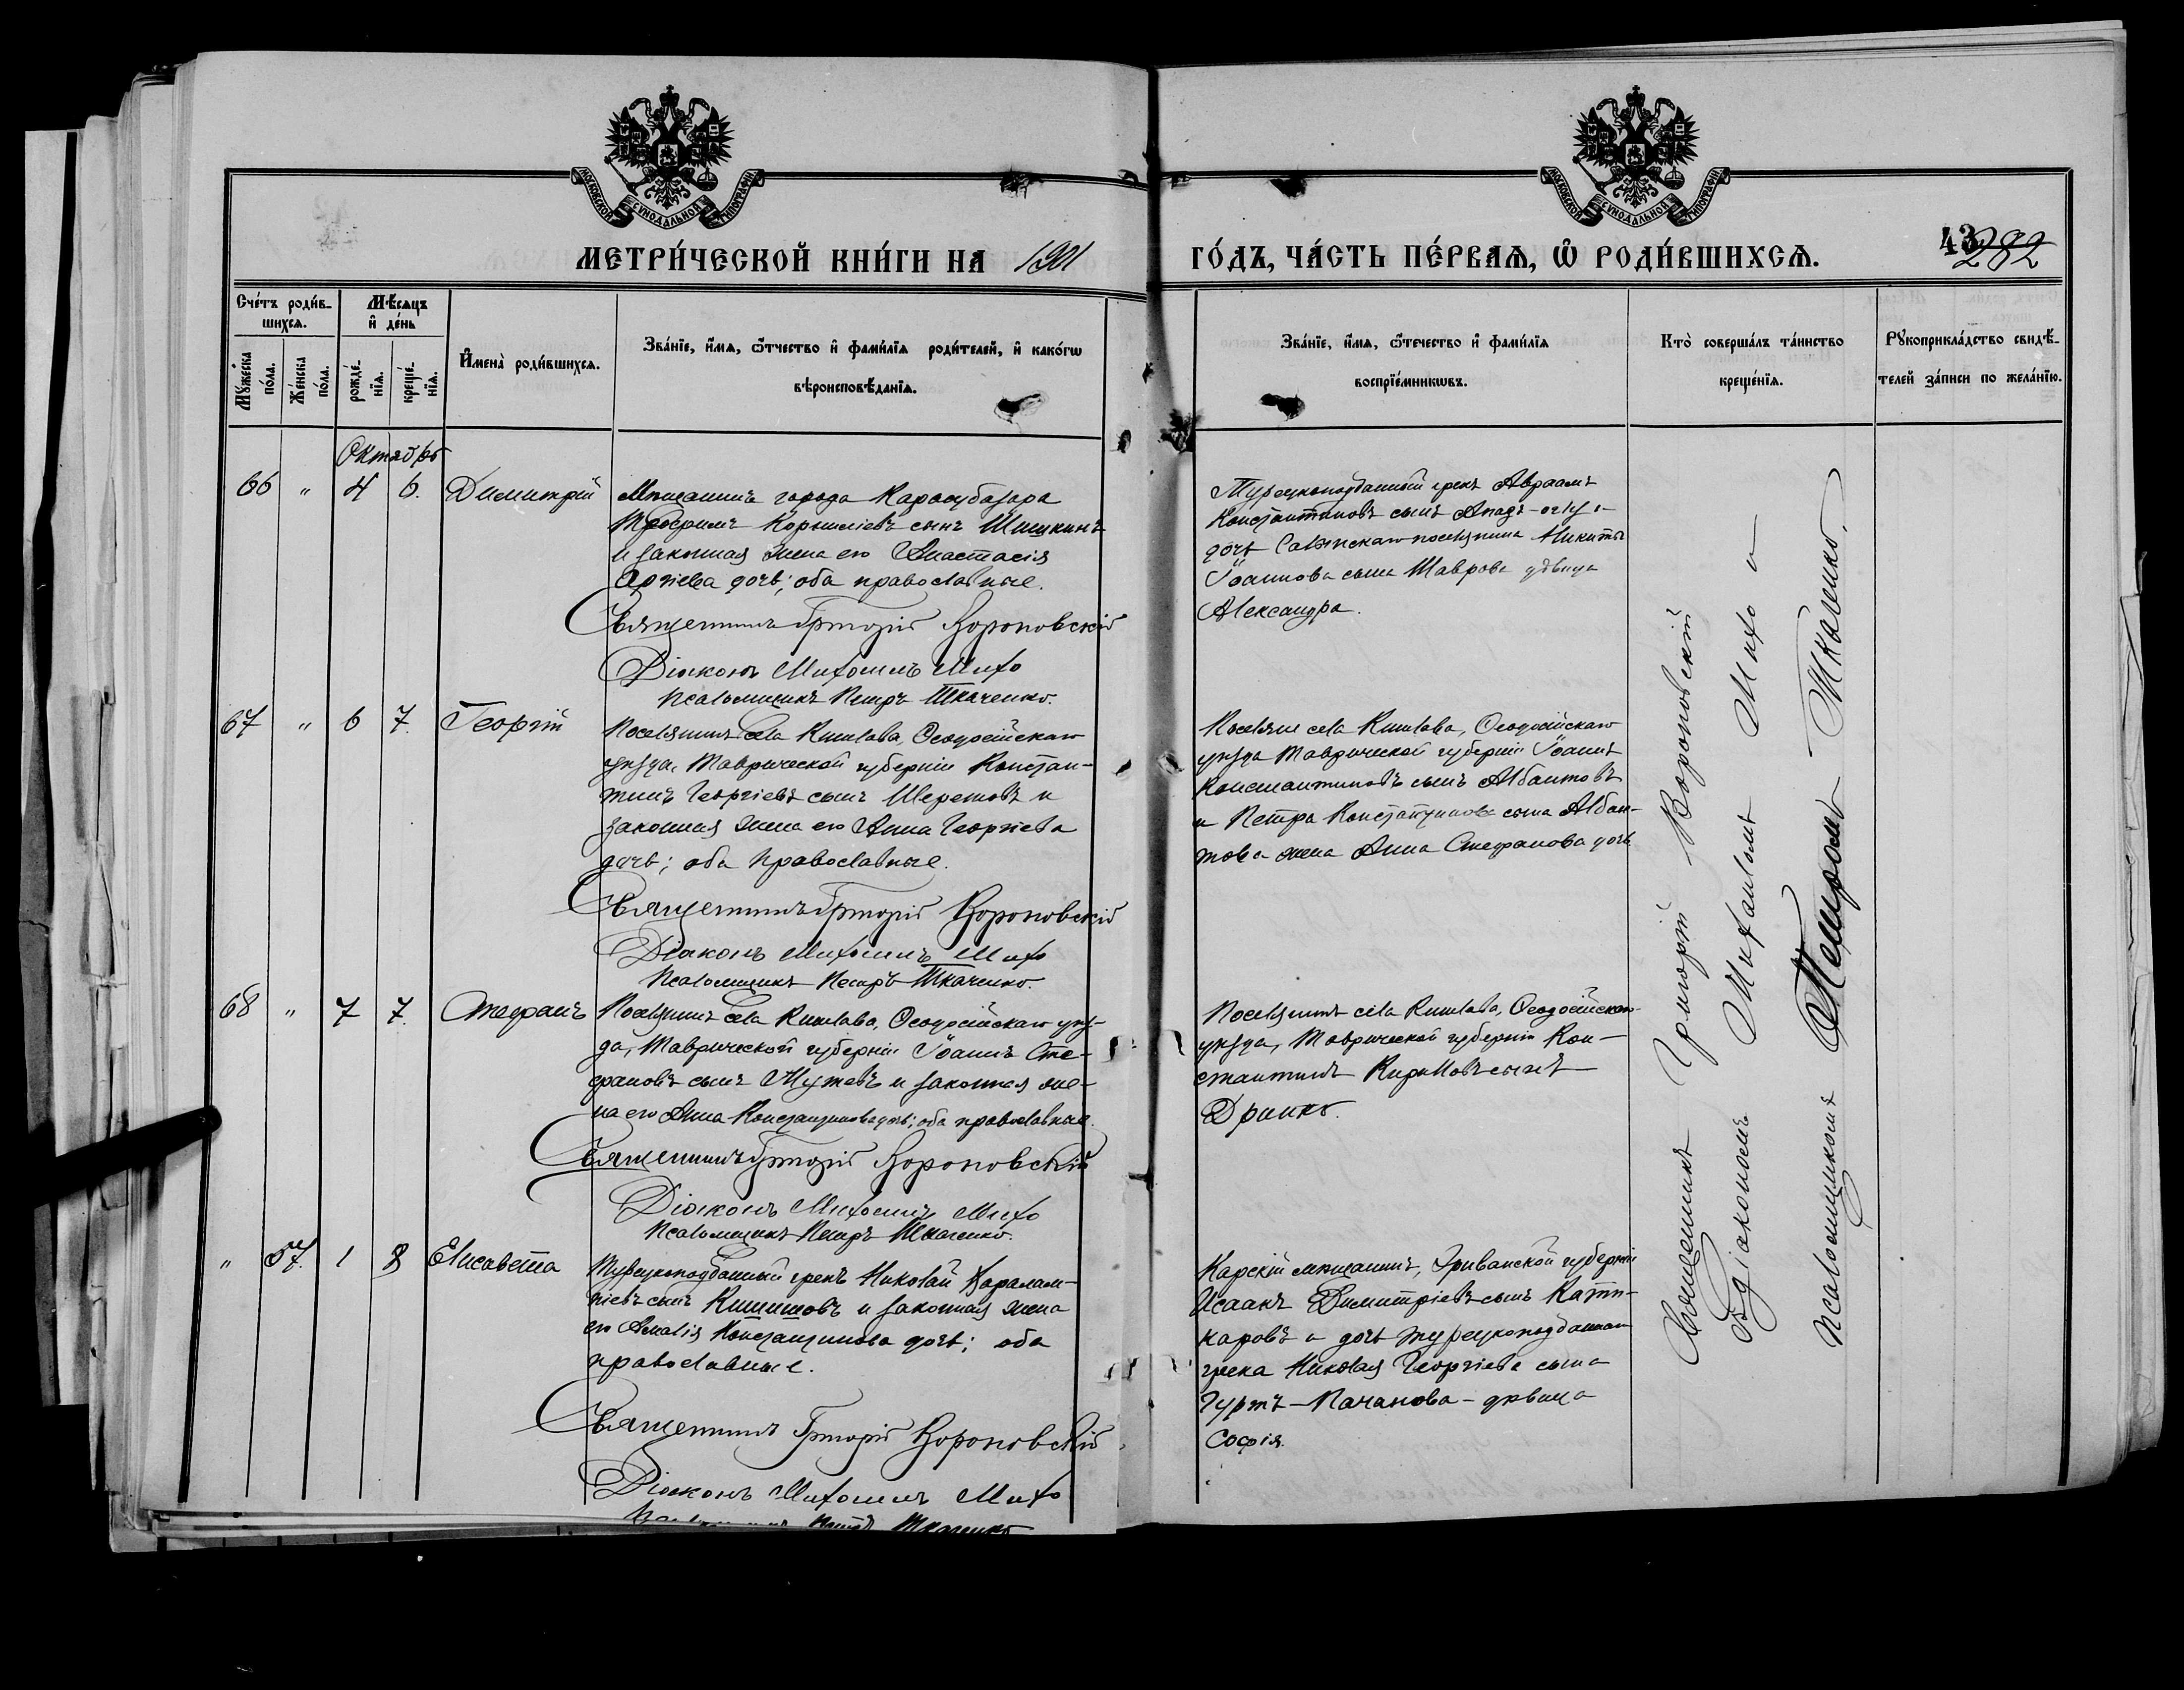 МОСКОВСКОЙ СѴНОДАЛЬНОЙ ТИПОГРАФІИ
МОСКОВСКОЙ СѴНОДАЛЬНОЙ ТИПОГРАФІИ
МЕТРИ́ЧЕСКОЙ КНИ́ГИ НА 1901
ГО́ДЪ, ЧА́СТЬ ПЕ́РВАѦ, Ѽ РОДИ́ВШИХСѦ.
43 282
Сче́тъ роди́в-
шихсѧ.
Мѣ́сяцъ
и҆ де́нь
Мꙋ́жеска по́ла.
Же́нска по́ла.
рожде́-нїѧ.
креще́-нїѧ.
И҆мена̀ роди́вшихсѧ.
Зва́нїе, и҆́мѧ, ѻ҆́тчество и҆ фами́лїѧ роди́телей, и҆ како́гѡ
вѣроисповѣ́данїѧ.
Зва́нїе, и҆́мѧ, ѻ҆́течество и҆ фами́лїѧ
воспрїе́мникѡвъ.
Кто̀ соверша́лъ та́инство
креще́нїѧ.
Рꙋкоприкла́дство свидѣ́-
телей за́писи по жела́нїю.
Октябрь
66 " 4 6. Димитрій
Мѣщанинъ города Карасубазара
Корниліевъ сынъ Шишкинъ
и законная жена его Анастасія
дочь; оба православные.
Священникъ Григорій Вороновскій
Діаконъ Михаилъ Михо
Псаломщикъ Петръ Ткаченко.
Турецкоподданный грекъ Авраамъ
Константиновъ сынъ и
дочь поселянина Никиты
Іоаннова сына Маврова дѣвица
Александра.
67 " 6 7. Георгій
Поселянинъ села Кишлава, Ѳеодосійскаго
уѣзда, Таврической губерніи Констан-
тинъ Георгіевъ сынъ Шереметовъ и
законная жена его Анна Георгіева
дочь; оба православные.
Священникъ Григорій Вороновскій
Діаконъ Михаилъ Михо
Псаломщикъ Петръ Ткаченко.
Поселяне села Кишлава, Ѳеодосійскаго
уѣзда Таврической губерніи Іоаннъ
Константиновъ сынъ Албантовъ
и Петра Константинова сына Албан-
това жена Анна Стефанова дочь
68 " 7 7. Стефанъ
Поселянинъ села Кишлава, Ѳеодосійскаго уѣз-
да, Таврической губерніи Іоаннъ Сте-
фановъ сынъ Мутевъ и законная же-
на его Анна Константинова дочь; оба православные.
Священникъ Григорій Вороновскій
Діаконъ Михаилъ Михо
Псаломщикъ Петръ Ткаченко.
Поселянинъ села Кишлава, Ѳеодосійскаго
уѣзда, Таврической губерніи Кон-
стантинъ Кирилловъ сынъ
Дринко.
" 57. 1 8 Елисавета
Турецкоподданный грекъ Николай Харалам-
піевъ сынъ Кишишовъ и законная жена
его Амалія Константинова дочь; оба
православные.
Священникъ Григорій Вороновскій
Діаконъ Михаилъ Михо
Псаломщикъ Петръ Ткаченко
Карскій мѣщанинъ, Эриванской губерніи
Исаакъ Димитріевъ сынъ Кати-
каровъ и дочь турецкоподданнаго
грека Николая Георгіева сына
Гуртъ-Пачанова - дѣвица
Софія.
Священникъ Григорій Вороновскій
съ діакономъ Михаиломъ Михо и
псаломщикомъ Петромъ Ткаченко.